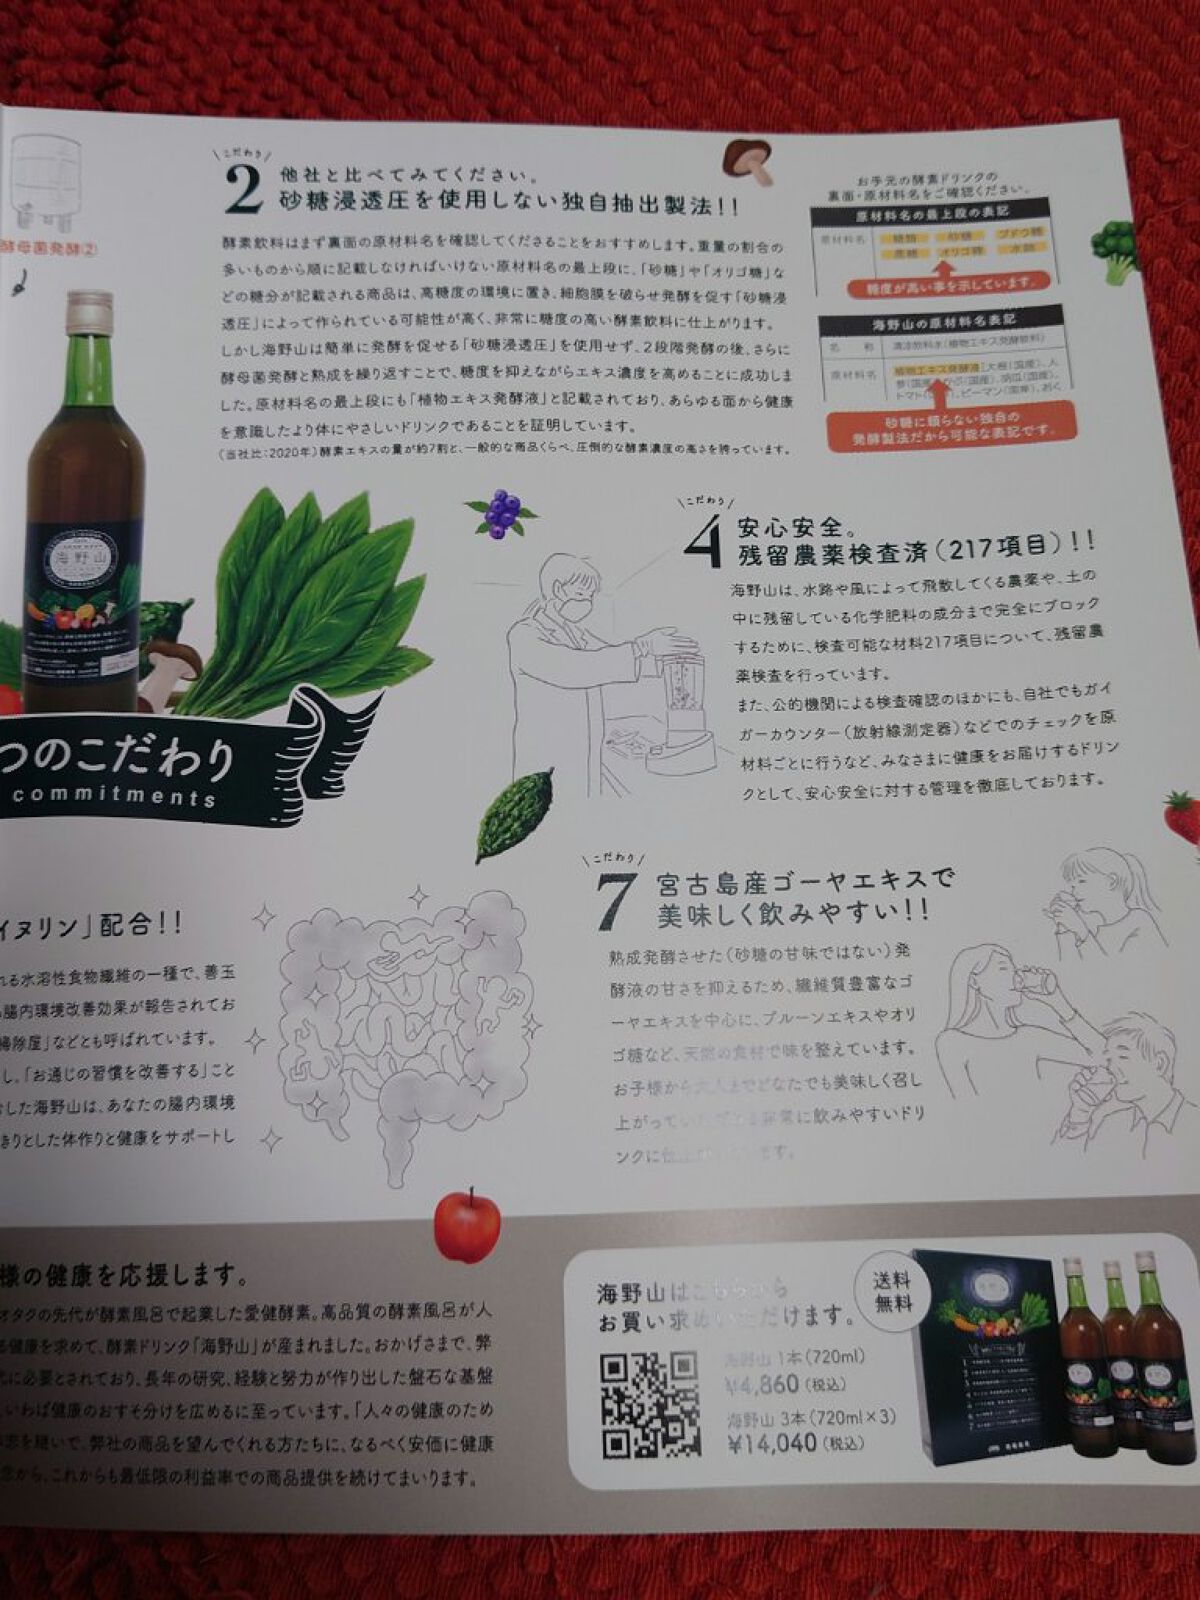 酵母菌発酵②
海野山
つのこだわり
commitments
こだわり
2
他社と比べてみてください。
砂糖浸透圧を使用しない独自抽出製法!!
酵素飲料はまず裏面の原材料名を確認してくださることをおすすめします。重量の割合の
多いものから順に記載しなければいけない原材料名の最上段に、「砂糖」や「オリゴ糖」な
どの糖分が記載される商品は、高糖度の環境に置き、細胞膜を破らせ発酵を促す「砂糖浸
透圧」によって作られている可能性が高く、非常に糖度の高い酵素飲料に仕上がります。
しかし海野山は簡単に発酵を促せる「砂糖浸透圧」を使用せず、2段階発酵の後、さらに
酵母菌発酵と熟成を繰り返すことで、糖度を抑えながらエキス濃度を高めることに成功しま
した。原材料名の最上段にも「植物エキス発酵液」と記載されており、あらゆる面から健康
を意識したより体にやさしいドリンクであることを証明しています。
(当社比:2020年)酵素エキスの量が約7割と、一般的な商品くらべ、圧倒的な酵素濃度の高さを誇っています。
お手元の酵素ドリンクの
裏面・原材料名をご確認ください。
原材料名の最上段の表記
原材料名 糖類 砂糖 ブドウ糖
果糖 オリゴ糖 水飴
糖度が高い事を示しています。
海野山の原材料名表記
名 称 清涼飲料水(植物エキス発酵飲料)
原材料名 植物エキス発酵液[大根(国産)、人
参(国産)、(国産)、胡瓜(国産)、
トマト、ピーマン(国産)、おく
砂糖に頼らない独自の
発酵製法だから可能な表記です。
こだわり
4
安心安全。
残留農薬検査済(217項目)!!
海野山は、水路や風によって飛散してくる農薬や、土の
中に残留している化学肥料の成分まで完全にブロック
するために、検査可能な材料217項目について、残留農
薬検査を行っています。
また、公的機関による検査確認のほかにも、自社でもガイ
ガーカウンター(放射線測定器)などでのチェックを原
材料ごとに行うなど、みなさまに健康をお届けするドリン
クとして、安心安全に対する管理を徹底しております。
イヌリン」配合!!
れる水溶性食物繊維の一種で、善玉
腸内環境改善効果が報告されてお
掃除屋」などとも呼ばれています。
し、「お通じの習慣を改善する」こと
した海野山は、あなたの腸内環境
きりとした体作りと健康をサポートし
こだわり
7
宮古島産ゴーヤエキスで
美味しく飲みやすい!!
熟成発酵させた(砂糖の甘味ではない)発
酵液の甘さを抑えるため、繊維質豊富なゴ
ーヤエキスを中心に、プルーンエキスやオリ
ゴ糖など、天然の食材で味を整えています。
お子様から大人までどなたでも美味しく召し
上がっていただける非常に飲みやすいドリ
ンクに仕上がっています。
様の健康を応援します。
オタクの先代が酵素風呂で起業した愛健酵素。高品質の酵素風呂が人
健康を求めて、酵素ドリンク「海野山」が産まれました。おかげさまで、弊
に必要とされており、長年の研究、経験と努力が作り出した盤石な基盤
いわば健康のおすそ分けを広めるに至っています。「人々の健康のため
を継いで、弊社の商品を望んでくれる方たちに、なるべく安価に健康
念から、これからも最低限の利益率での商品提供を続けてまいります。
海野山はこちらから
お買い求めいただけます。
送料
無料
海野山 1本(720ml)
¥4,860(税込)
海野山 3本(720ml×3)
¥14,040(税込)